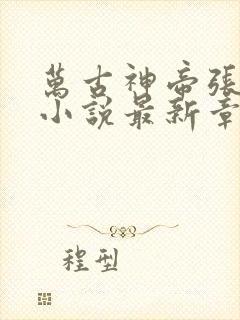 萬古神帝張
小說最新章
程型